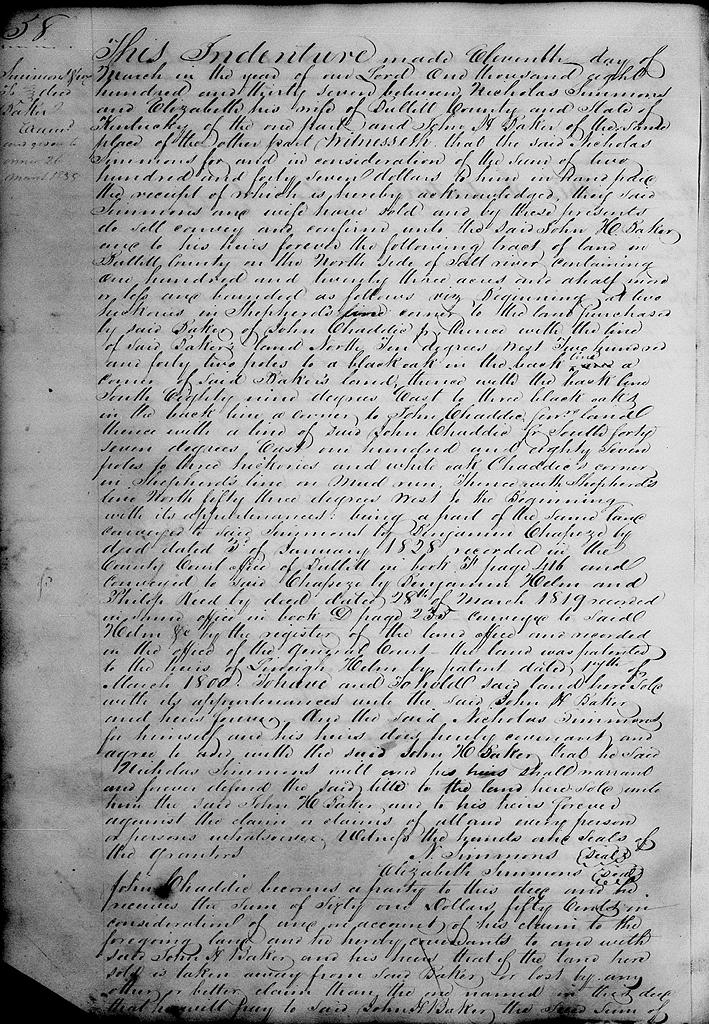 58
Simmons & ux
To deed
Baker
Exam
March 1838
This Indenture made Eleventh day of
March in the year of our Lord One thousand eight
hundred and thirty seven between Nicholas Simmons
and Elizabeth his wife of Bullitt County and State of
Kentucky of the one part and John H Baker of the same
place of the other part Witnesseth that the said Nicholas
Simmons for and in consideration of the sum of two
hundred and forty seven dollars to him in hand paid
the receipt of which is hereby acknowledged, they said
Simmons and wife have sold and by these presents
do sell convey and confirm unto the said John H. Baker
and to his heirs forever the following tract of land in
Bullitt County on the North side of Salt river, containing
one hundred and twenty three acres and a half more
or less and bounded as follows viz Beginning at two
hickories in Shepherd's line corner to the land purchased
by said Baker of John Chaddic jr thence with the line
of said Baker's land North Ten degrees West Two hundred
and forty two poles to a black oak in the back line a
corner of said Baker's land, thence with the back line
South Eighty nine degrees East to three black oaks
in the back line, a corner to John Chaddic, senr land
thence with a line of said John Chaddic Jr South forty
seven degrees, East one hundred and eighty seven
poles to three hickories and white oak Chaddic's corner
in Shepherd's line on Mud run, Thence with Shepherd's
line North fifty three degrees West to the Beginning
with its appurtenances: being a part of the same land
conveyed to said Simmons by Benjamin Chapeze by
deed dated 3d of January 1828 recorded in the
County Court office of Bullitt in book F page 416 and
conveyed to said Chapeze by Benjamin Helm and
Philip Reed by deed dated 28th of March 1819 recorded
in same office in book D page 235 conveyed to said
Helm &c by the register of the land office and recorded
in the office of the General Court the land was patented
to the heirs of Linleigh Helm by patent dated 17th of
March 1800. To have and To hold said land here sold
with its appurtenances unto the said John H Baker
and heirs forever, And the said Nicholas Simmons
for himself and his heirs does hereby covenant and
agree to and with the said John H Baker, that he said
Nicholas Simmons will and his heirs shall warrant
and forever defend the said title to the land here sold unto
him the said John H Baker and to his heirs forever
against the claim or claims of all and every person
or persons whatsoever, Witness the hands and seals of
the grantors N. Simmons (seal)
Elizabeth Simmons (seal)
John Chaddic becomes a party to this deed and he
receives the sum of Sixty one Dollars, fifty Cents in
consideration of and on account of his claim to the
foregoing land and he hereby covenants to and with
said John H Baker and his heirs that if the land here
sold is taken away from said Baker, or lost by any
other or better claim than the one named in this deed
that he will pay to said John H Baker the said sum of